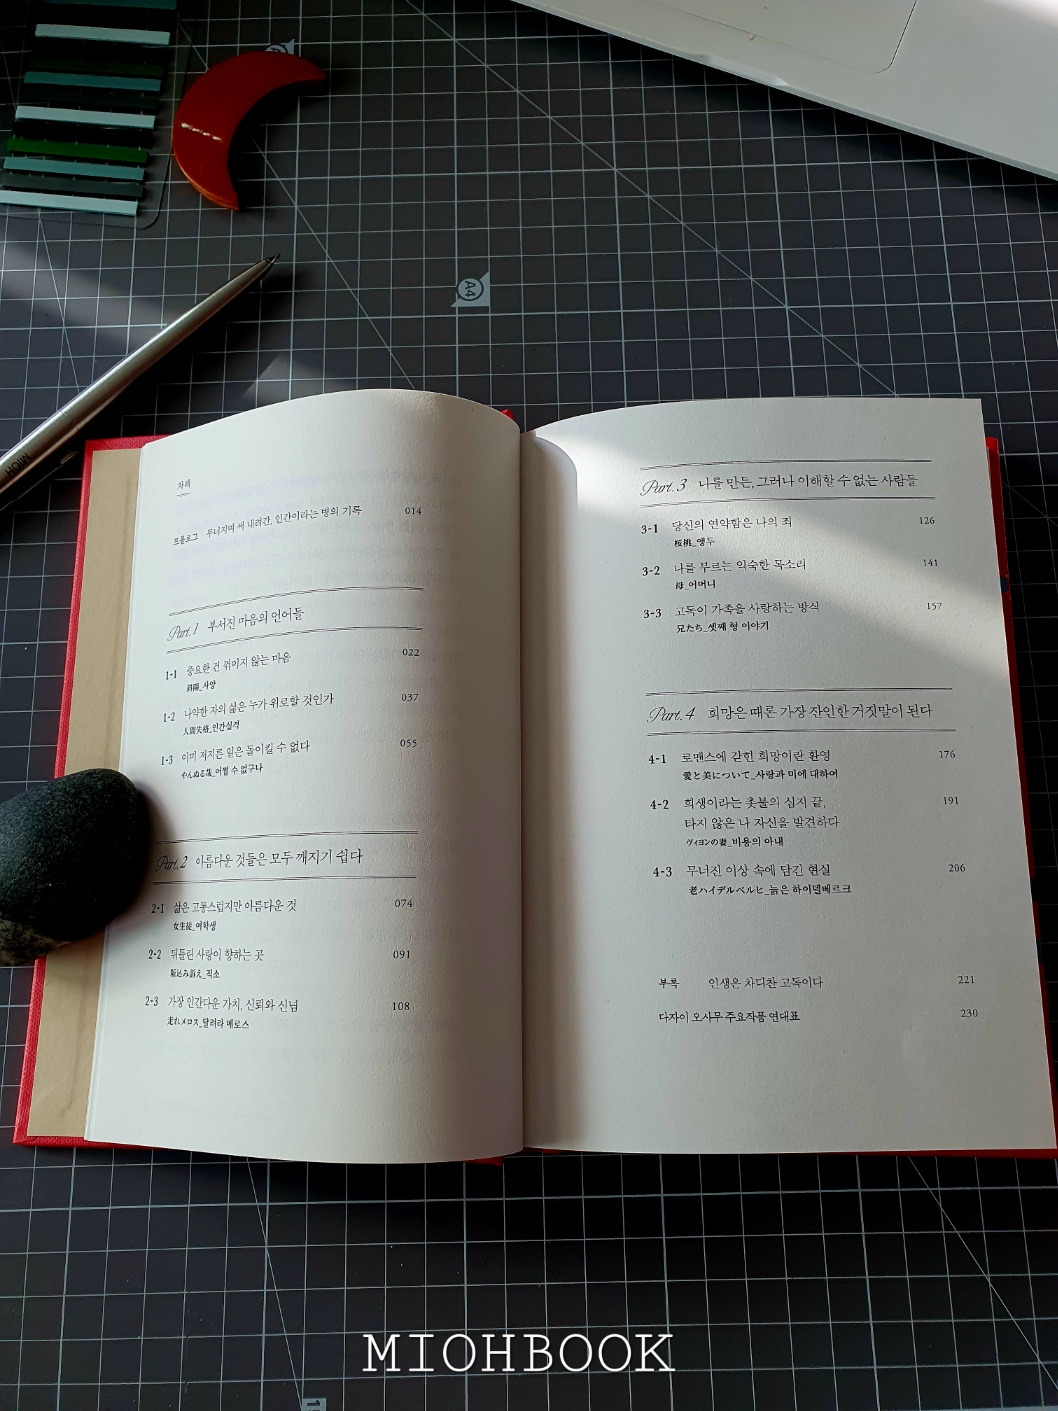 A4
차례
프롤로그 무너지며 써 내려간, 인간이라는 병의 기록 014
Part. 1 부서진 마음의 언어들
1-1 중요한 건 꺾이지 않는 마음 022
斜陽_사양
1-2 나약한 자의 삶은 누가 위로할 것인가 037
人間失格_인간실격
1-3 이미 저지른 일은 돌이킬 수 없다 055
やんぬる哉_어쩔 수 없구나
Part. 2 아름다운 것들은 모두 깨지기 쉽다
2-1 삶은 고통스럽지만 아름다운 것 074
女生徒_여학생
2-2 뒤틀린 사랑이 향하는 곳 091
駈込み訴え_직소
2-3 가장 인간다운 가치, 신뢰와 신념 108
走れメロス_달려라 메로스
Part. 3 나를 만든, 그러나 이해할 수 없는 사람들
3-1 당신의 연약함은 나의 죄 126
桜桃_앵두
3-2 나를 부르는 익숙한 목소리 141
母_어머니
3-3 고독이 가족을 사랑하는 방식 157
兄たち_셋째 형 이야기
Part. 4 희망은 때론 가장 잔인한 거짓말이 된다
4-1 로맨스에 갇힌 희망이란 환영 176
愛と美について_사랑과 미에 대하여
4-2 희생이라는 촛불의 심지 끝, 191
타지 않은 나 자신을 발견하다
ヴィヨンの妻_비용의 아내
4-3 무너진 이상 속에 담긴 현실 206
老ハイデルベルヒ_늙은 하이델베르크
부록 인생은 차디찬 고독이다 221
다자이 오사무 주요작품 연대표 230
MIOHBOOK